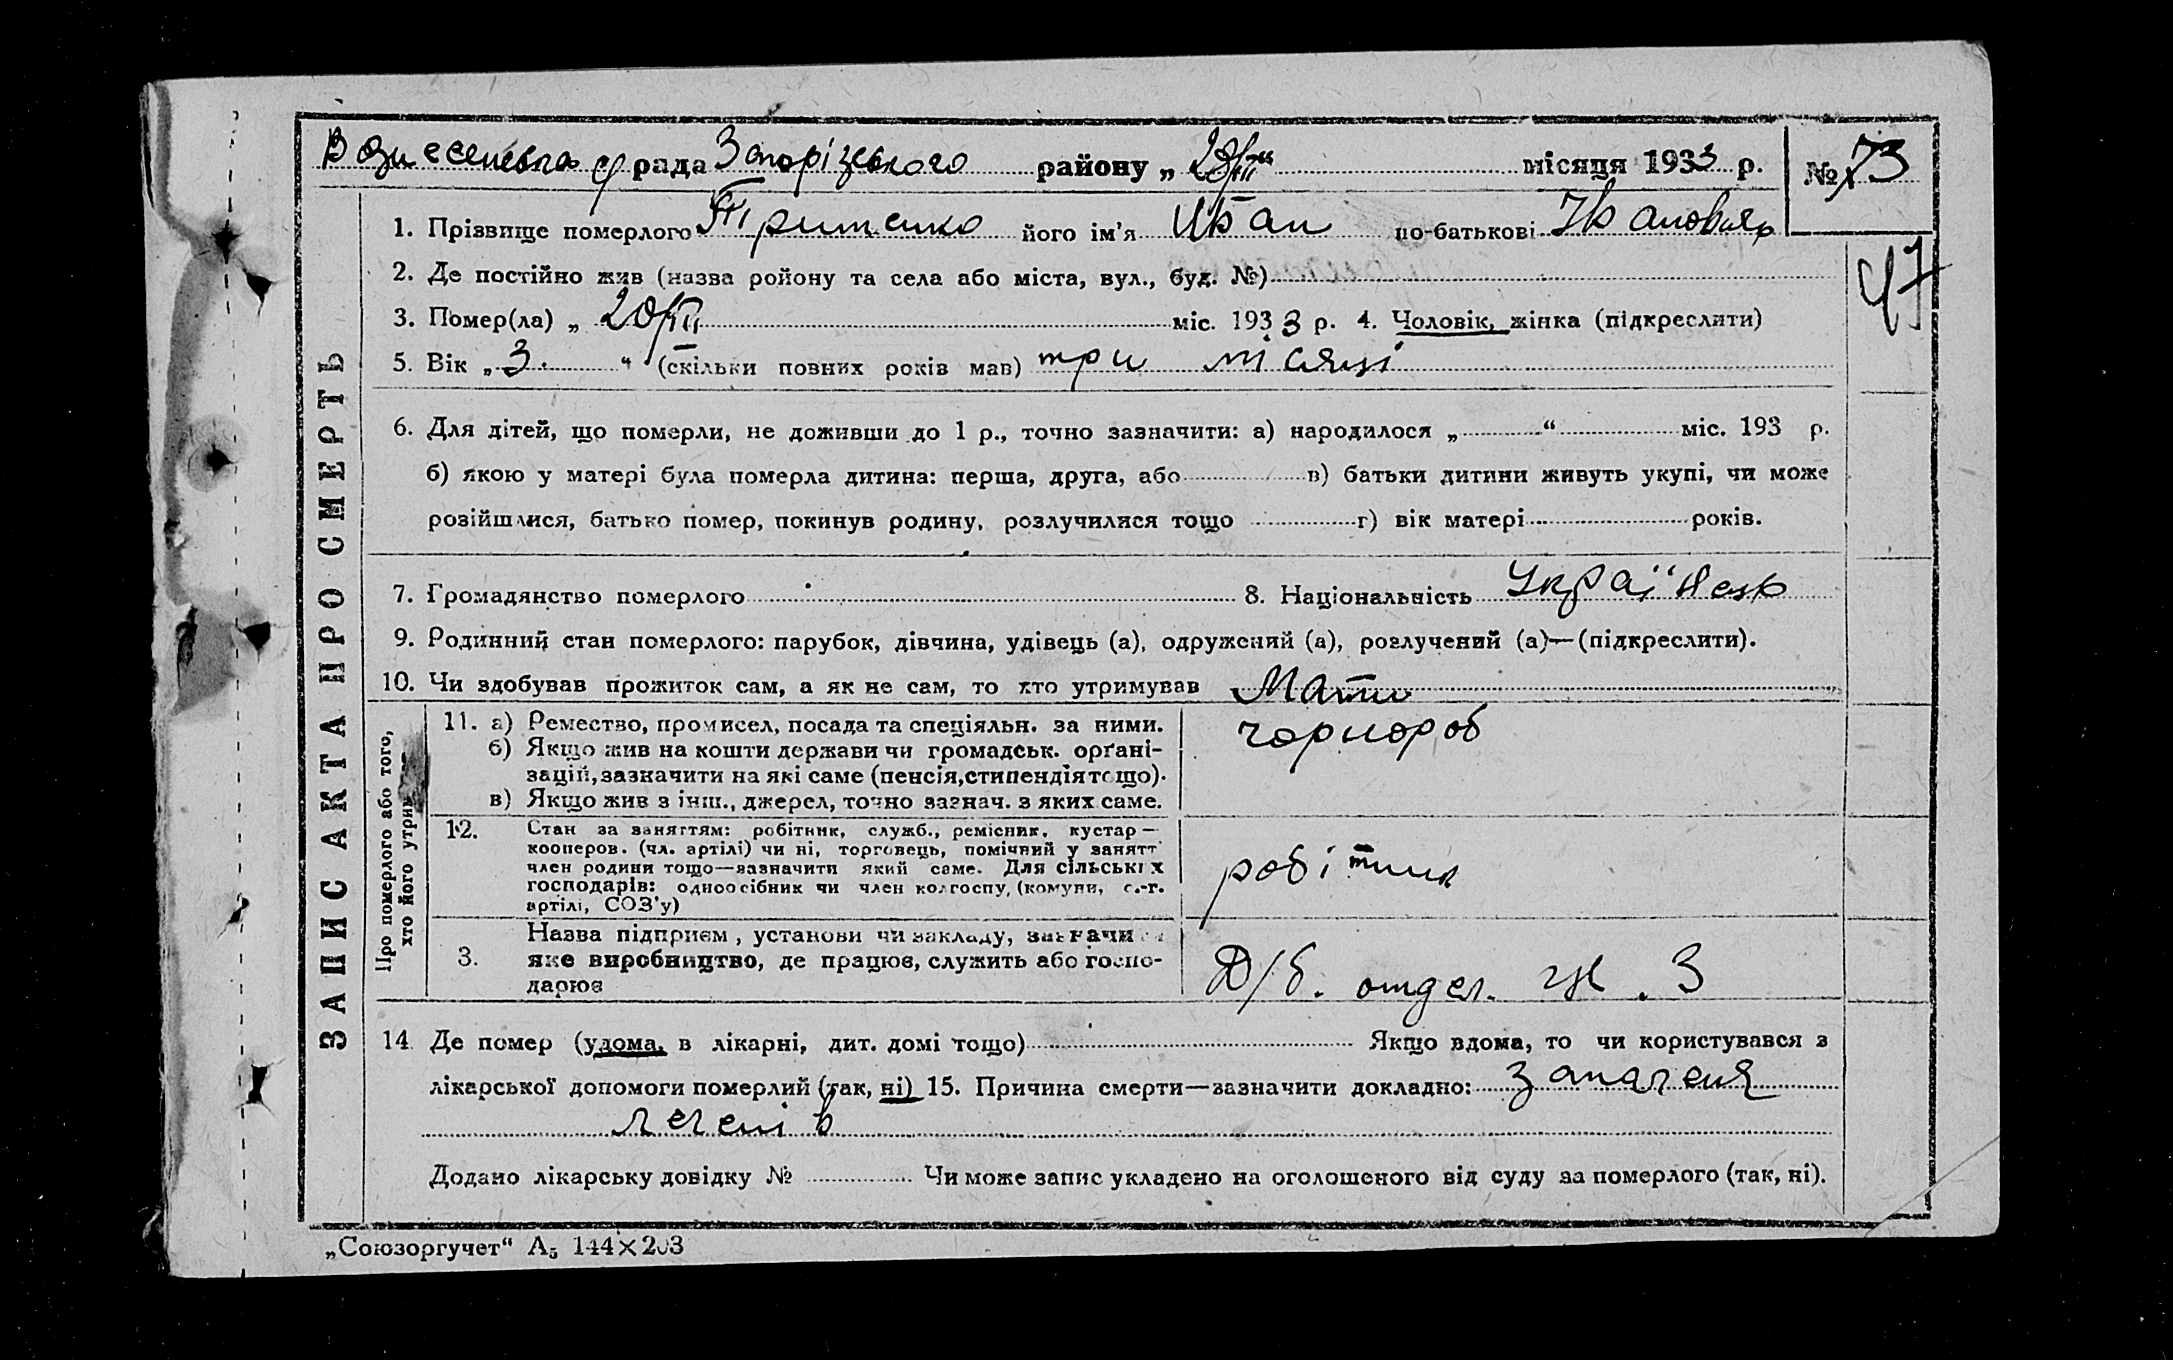 Вознесенська с/рада Запорізського району „ 20/III “ місяця 1933 р. № 73
1. Прізвище померлого його ім'я Іван по-батькові Івановичь
47
2. Де постійно жив (назва ройону та села або міста, вул., буд. №)
3. Помер(ла) „ 20/III міс. 1933 р. 4. Чоловік, жінка (підкреслити)
5. Вік „ 3 “ (скільки повних років мав) три місяці
6. Для дітей, що померли, не доживши до 1 р., точно зазначити: а) народилося „ “ міс. 193 р.
б) якою у матері була померла дитина: перша, друга, або в) батьки дитини живуть укупі, чи може
розійшлися, батько помер, покинув родину, розлучилися тощо г) вік матері років.
7. Громадянство померлого 8. Національність Українець
9. Родинний стан померлого: парубок, дівчина, удівець (а), одружений (а), розлучений (а)—(підкреслити).
10. Чи здобував прожиток сам, а як не сам, то хто утримував Мати
Про померлого або того,
хто його утрим
11. а) Ремество, промисел, посада та спеціяльн. за ними. чорнороб
б) Якщо жив на кошти держави чи громадськ. орґані-
зацій, зазначити на які саме (пенсія, стипендія тощо).
в) Якщо жив з інш., джерел, точно зазнач. з яких саме.
12. Стан за заняттям: робітник, служб., ремісник, кустар —
кооперов. (чл. артілі) чи ні, торговець, помічний у занятт
член родини тощо—зазначити який саме. Для сільських
господарів: одноосібник чи член колгоспу, (комуни, с.-г.
артілі, СОЗ'у)
робітник
Назва підприєм, установи чи закладу, зазначи
3. яке виробництво, де працює, служить або госпо-
дарює
Д/б. отдел. 3
14 Де помер (удома, в лікарні, дит. домі тощо) Якщо вдома, то чи користувався з
лікарської допомоги померлий (так, ні) 15. Причина смерти—зазначити докладно: запаленя
легенів
Додано лікарську довідку № Чи може запис укладено на оголошеного від суду за померлого (так, ні).
ЗАПИС АКТА ПРО СМЕРТЬ
„Союзоргучет“ А₅ 144×203